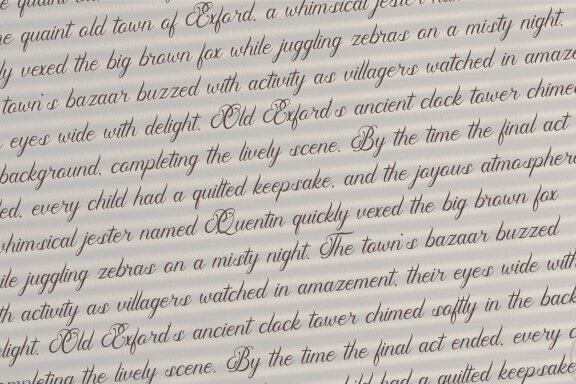 quaint
quaint old town of Exford, a whimsical jester
vexed the big brown fox while juggling zebras on a misty night.
town's bazaar buzzed with activity as villagers watched in amaze
eyes wide with delight. Old Exford's ancient clock tower chime
background, completing the lively scene. By the time the final act
ed, every child had a quilted keepsake, and the joyous atmosphere
whimsical jester named Quentin quickly vexed the big brown fox
ile juggling zebras on a misty night. The town's bazaar buzzed
th activity as villagers watched in amazement, their eyes wide with
light. Old Exford's ancient clock tower chimed softly in the back
mpleting the lively scene. By the time the final act ended, every
had a quilted keepsake